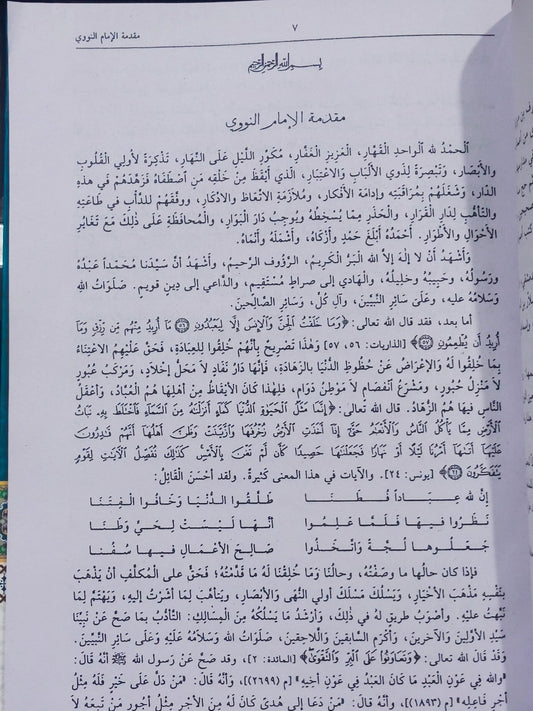 مقدمة الإمام النووي ٧
بسم الله الرحمن الرحيم
مقدمة الإمام النووي
الْحمْدُ لله الْواحدِ الْقَهَّارِ، الْعَزِيزِ الْغَفَّارِ، مُكَوِّرِ اللَّيْلِ عَلَى النَّهَارِ، تَذْكِرَةً لأُولِي الْقُلُوبِ
والأَبْصَارِ، وَتَبْصِرَةً لِذَوي الأَلْبَابِ وَالاعْتِبَارِ، الَّذي أَيْقَظَ مِنْ خَلْقِهِ مَنِ اصْطَفَاهُ فَزَهَّدَهُمْ في هذِهِ
الدَّارِ، وَشَغَلَهُمْ بِمُرَاقَبَتِهِ وإدَامَةِ الأَفْكَارِ، ومُلازَمَةِ الاتِّعَاظِ والادِّكَارِ، ووَفَّقَهُمْ لِلدَّأْبِ في طَاعَتِهِ
والتَّأَهُّبِ لِدَارِ الْقَرَارِ، وَالْحَذَرِ مِمَّا يُسْخِطُهُ ويُوجِبُ دَارَ الْبَوَارِ، وَالْمُحَافَظَةِ عَلَى ذَلِكَ مَعَ تَغَايُرِ
الأَحْوَالِ وَالأَطْوَارِ. أَحْمَدُهُ أَبْلَغَ حَمْدٍ وَأَزْكَاهُ، وَأَشْمَلَهُ وَأَنْمَاهُ.
وَأَشْهَدُ أَنْ لا إلهَ إلاَّ اللهُ الْبَرُّ الْكَرِيمُ، الرَّؤُوفُ الرَّحيمُ، وَأشْهَدُ أنَّ سَيِّدَنا مُحَمَّداً عَبْدُهُ
ورَسُولُهُ، وَحَبِيبُهُ وخَلِيلُهُ، الْهَادي إلى صراطٍ مُسْتَقيمٍ، والدَّاعي إلى دِينٍ قويمٍ. صَلَوَاتُ اللهِ
وَسَلامُهُ عليهِ، وعَلَى سَائِرِ النَّبِيِّينَ، وآلِ كُلٍّ، وَسَائِرِ الصَّالِحينَ.
أما بعد، فقد قال الله تعالى: ﴿وَمَا خَلَقْتُ الْجِنَّ وَالْإِنسَ إِلَّا لِيَعْبُدُونِ ٥٦ مَا أُرِيدُ مِنْهُم مِّن رِّزْقٍ وَمَا
أُرِيدُ أَن يُطْعِمُونِ ٥٧﴾ [الذاريات: ٥٦، ٥٧] وَهَذَا تَصْريحٌ بأَنَّهُمْ خُلِقُوا للعِبَادَةِ، فَحَقَّ عَلَيْهِمُ الاعْتِنَاءُ
بِمَا خُلِقُوا لَهُ وَالإِعْرَاضُ عَنْ حُظُوظِ الدُّنْيَا بالزَّهَادَةِ، فَإنَّهَا دَارُ نَفَادٍ لاَ مَحَلُّ إخْلاَدٍ، وَمَرْكَبُ عُبُورٍ
لاَ مَنْزِلُ حُبُورٍ، ومَشْرَعُ انْفصَامٍ لاَ مَوْطِنُ دَوَامٍ، فلِهذا كَانَ الأَيْقَاظُ مِنْ أَهْلِهَا هُمُ الْعُبَّادُ، وَأعْقَلُ
النَّاسِ فيهَا هُمُ الزُّهَّادُ. قال اللهُ تعالى: ﴿إِنَّمَا مَثَلُ الْحَيَوٰةِ الدُّنْيَا كَمَاءٍ أَنزَلْنَاهُ مِنَ السَّمَاءِ فَاخْتَلَطَ بِهِ نَبَاتُ
الْأَرْضِ مِمَّا يَأْكُلُ النَّاسُ وَالْأَنْعَامُ حَتَّىٰ إِذَا أَخَذَتِ الْأَرْضُ زُخْرُفَهَا وَازَّيَّنَتْ وَظَنَّ أَهْلُهَا أَنَّهُمْ قَادِرُونَ
عَلَيْهَا أَتَاهَا أَمْرُنَا لَيْلًا أَوْ نَهَارًا فَجَعَلْنَاهَا حَصِيدًا كَأَن لَّمْ تَغْنَ بِالْأَمْسِ كَذَٰلِكَ نُفَصِّلُ الْآيَاتِ لِقَوْمٍ
يَتَفَكَّرُونَ ٢٤﴾ [يونس: ٢٤]. والآيات في هذا المعنى كثيرةٌ. ولقد أحْسَنَ القَائِلُ:
إنَّ لله عِبَاداً فُطَنَا طَلَّقُوا الدُّنْيَا وَخَافُوا الْفِتَنَا
نَظَرُوا فيهَا فَلَمَّا عَلِمُوا أنَّهَا لَيْسَتْ لِحَيٍّ وَطَنَا
جَعَلُوها لُجَّةً وَاتَّخَذُوا صَالِحَ الأَعْمَالِ فيها سُفُنا
فإذا كان حالُها ما وصَفْتُهُ، وحالُنَا وَمَا خُلِقْنَا لَهُ مَا قَدَّمْتُهُ؛ فَحَقٌّ على المُكلَّفِ أنْ يَذْهَبَ
بنفسِهِ مَذْهَبَ الأخْيَارِ، ويَسْلُكَ مَسْلَكَ أولي النُّهَى وَالأَبْصَارِ، ويَتأهَّبَ لِمَا أشَرْتُ إليهِ، وَيَهْتَمَّ لِمَا
نَبَّهْتُ عليهِ. وأصْوَبُ طريقٍ لهُ في ذَلِكَ، وَأرْشَدُ مَا يَسْلُكُهُ مِنَ المسَالِكِ: التَّأدُّبُ بمَا صَحَّ عَنْ نَبِيِّنَا
سَيِّدِ الأَوَّلِينَ والآخرينَ، وَأَكْرَمِ السَّابقينَ وَالَّلاحِقينَ، صَلَوَاتُ الله وَسَلامُهُ عَلَيْهِ وَعَلَى سَائِرِ النَّبِيِّينَ.
وَقَدْ قَالَ الله تعالى: ﴿وَتَعَاوَنُوا عَلَى الْبِرِّ وَالتَّقْوَىٰ﴾ [المائدة: ٢]، وقد صَحَّ عَنْ رسولِ الله ﷺ أنَّهُ قالَ:
«والله في عَوْنِ الْعَبْدِ مَا كَانَ الْعَبْدُ في عَوْنِ أَخِيهِ» [م (٢٦٩٩)]، وَأَنَّهُ قالَ: «مَنْ دَلَّ عَلَى خَيْرٍ فَلَهُ مِثْلُ
أجْرِ فَاعِلِهِ» [م (١٨٩٣)]، وأنَّهُ قالَ: «مَنْ دَعَا إلى هُدًى كَانَ لَهُ مِنَ الأجْرِ مِثْلُ أُجُورِ مَنْ تَبِعَهُ لاَ